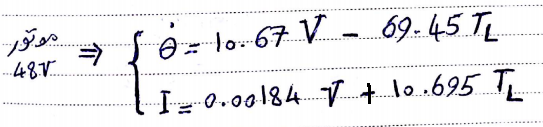 موتور 48V ⇒ { θ̇ = 10.67 V − 69.45 T_L
I = 0.00184 V + 10.695 T_L